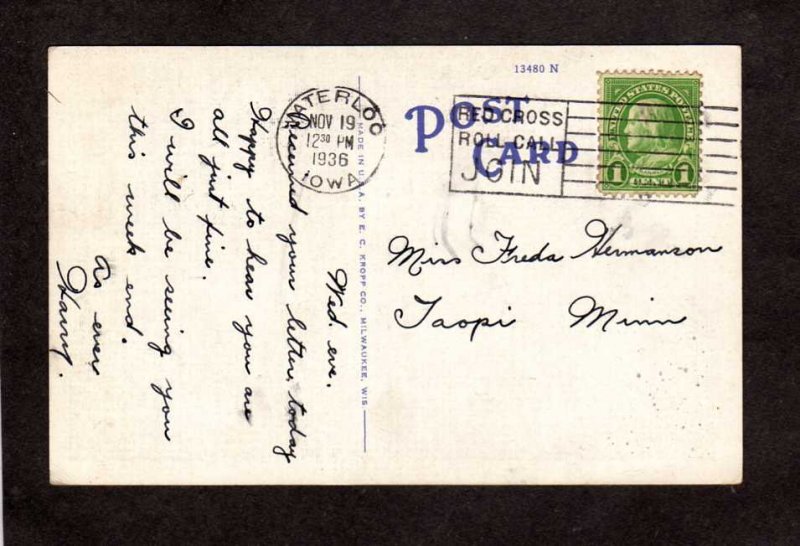 13480 N
POST CARD
WATERLOO
NOV 19
12 30 PM
1936
IOWA
RED CROSS
ROLL CALL
JOIN
UNITED STATES POSTAGE
1 CENT 1
MADE IN U.S.A. BY E. C. KROPP CO., MILWAUKEE, WIS
Miss Freda Hermanson
Taopi Minn
Wed. eve.
Received your letter today
Happy to hear you are
all just fine.
I will be seeing you
this week end.
As ever
Harry.